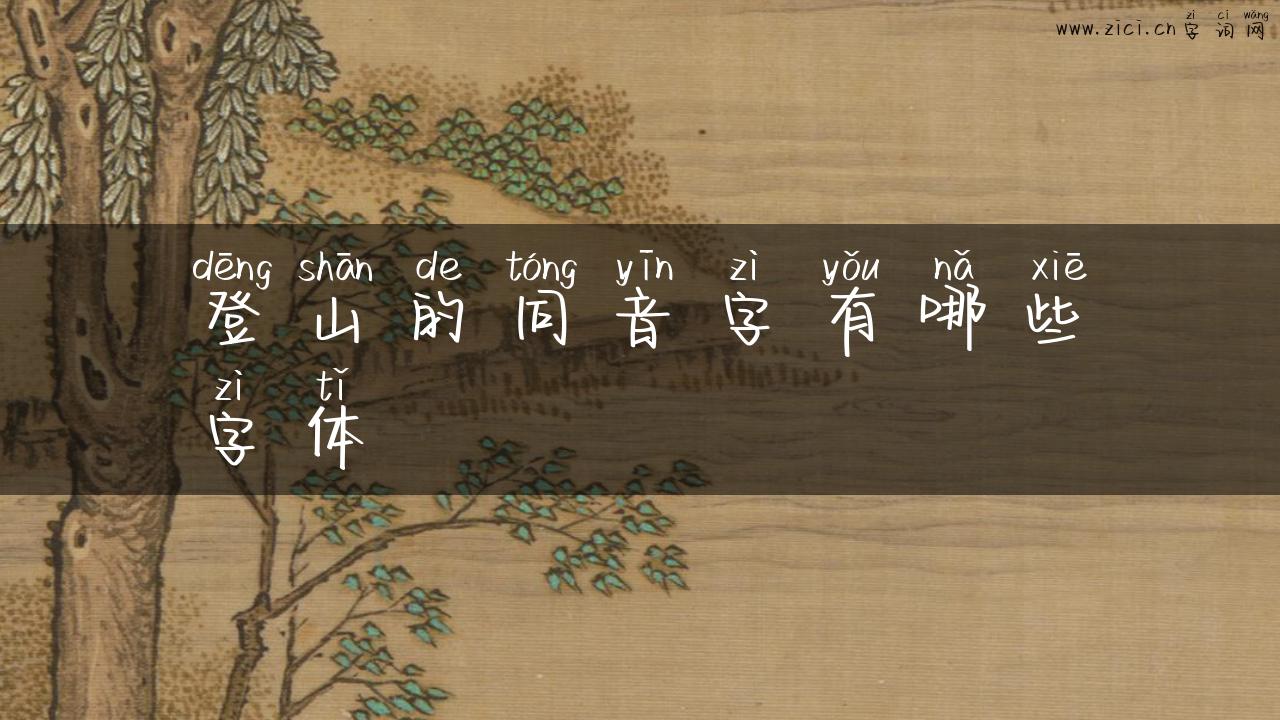 zì cí wǎng
www.zici.cn 字词网
dēng shān de tóng yīn zì yǒu nǎ xiē
登山的同音字有哪些
zì tǐ
字体